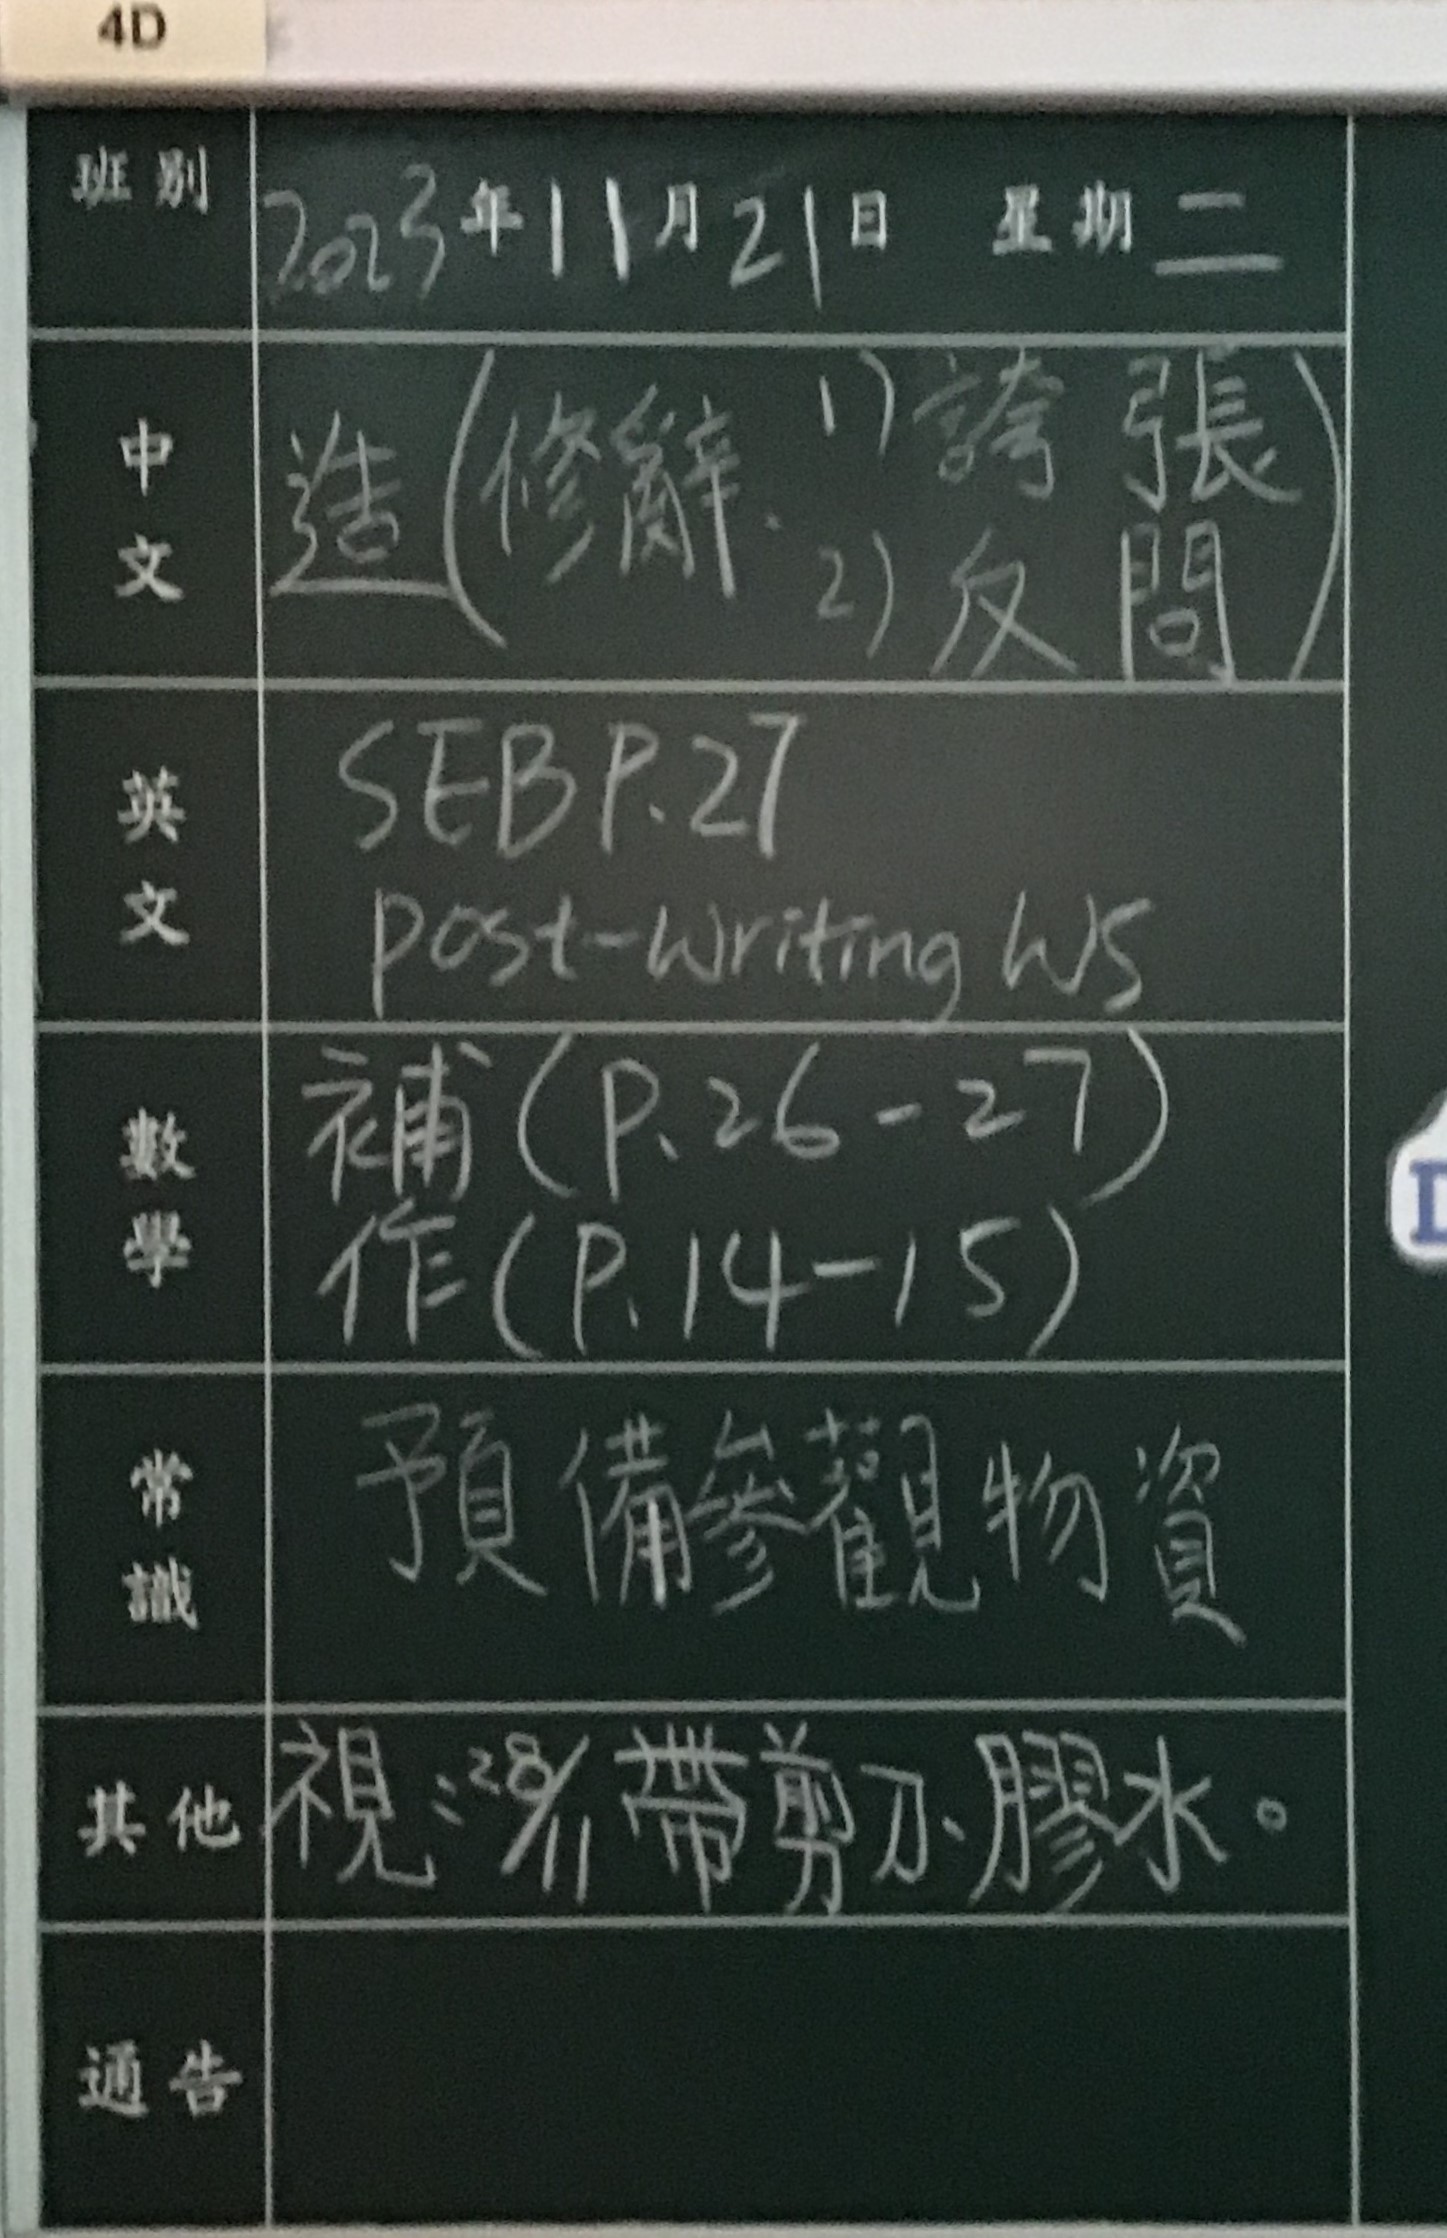 4D
班別 2023年11月21日 星期二
中文 造(修辭. 1)誇張
2)反問)
英文 SEB P.27
post-writing WS
數學 補(P.26-27)
作(P.14-15)
常識 預備參觀物資
其他 視:28/11 帶剪刀、膠水。
通告